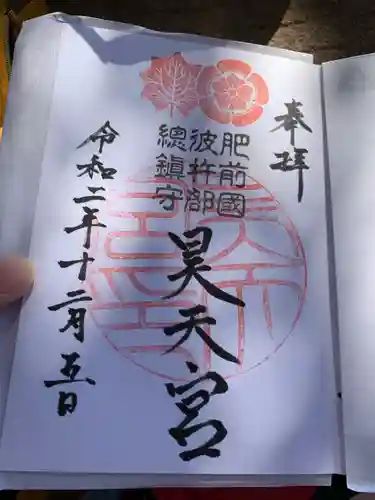 奉拝
肥前國
彼杵郡
總鎮守
昊天宮
令和二年十二月五日